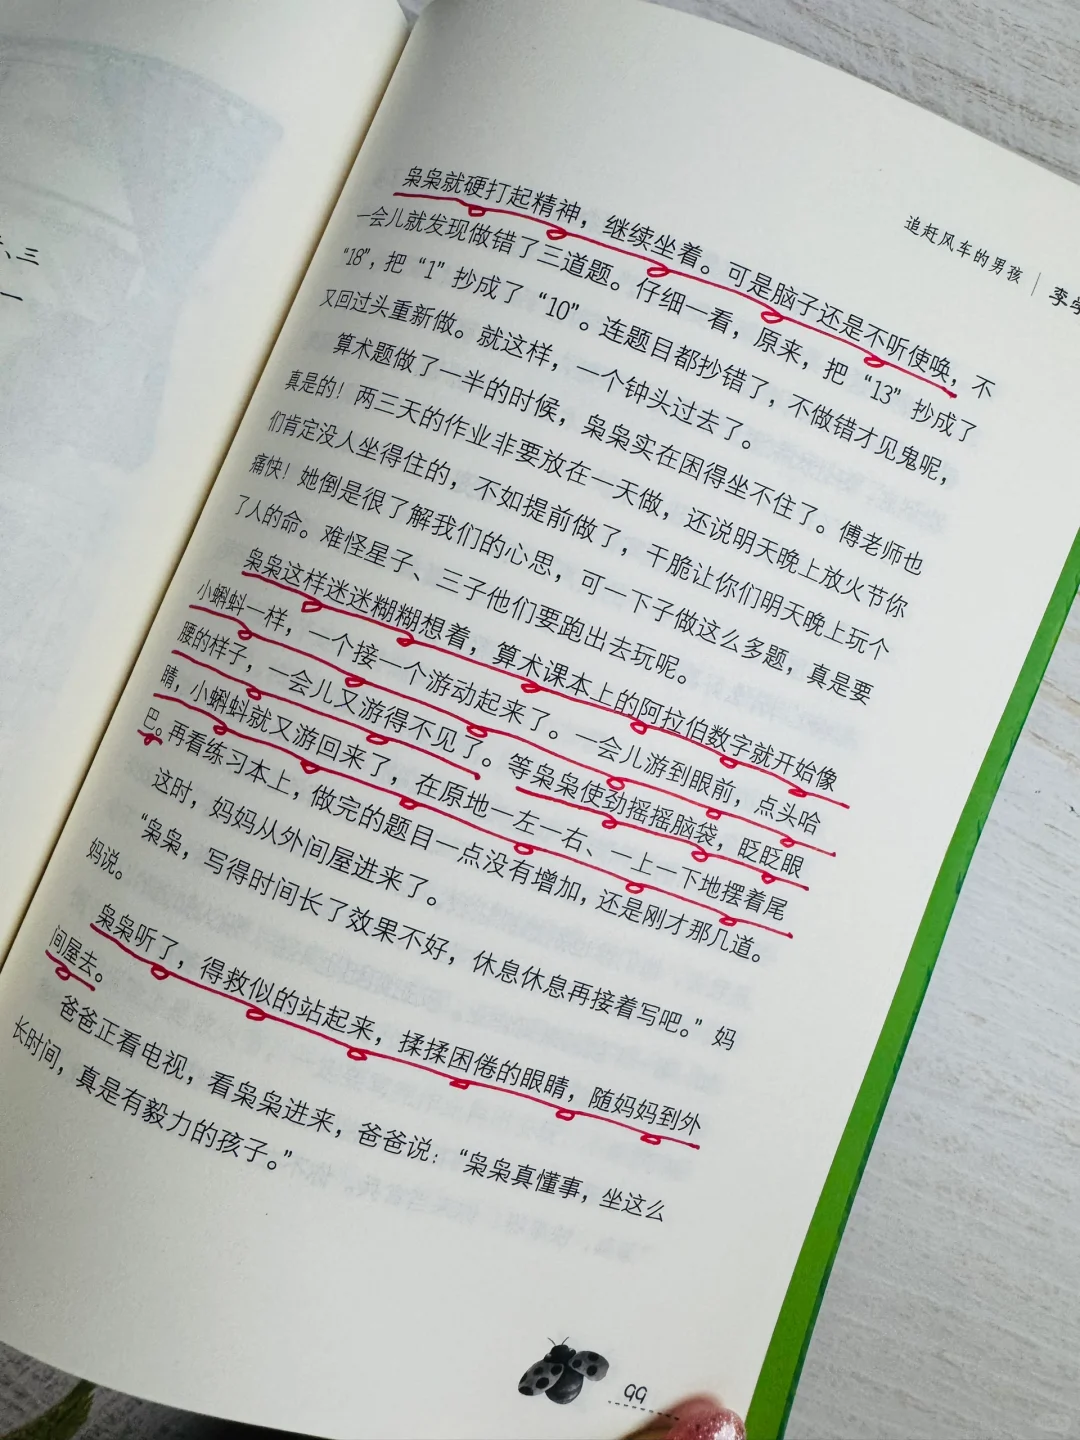 、三
一
追赶风车的男孩 | 李
枭枭就硬打起精神，继续坐着。可是脑子还是不听使唤，不
一会儿就发现做错了三道题。仔细一看，原来，把“13”抄成了
“18”，把“1”抄成了“10”。连题目都抄错了，不做错才见鬼呢，
又回过头重新做。就这样，一个钟头过去了。
算术题做了一半的时候，枭枭实在困得坐不住了。傅老师也
真是的！两三天的作业非要放在一天做，还说明天晚上放火节你
们肯定没人坐得住的，不如提前做了，干脆让你们明天晚上玩个
痛快！她倒是很了解我们的心思，可一下子做这么多题，真是要
了人的命。难怪星子、三子他们要跑出去玩呢。
枭枭这样迷迷糊糊想着，算术课本上的阿拉伯数字就开始像
小蝌蚪一样，一个接一个游动起来了。一会儿游到眼前，点头哈
腰的样子，一会儿又游得不见了。等枭枭使劲摇摇脑袋，眨眨眼
睛，小蝌蚪就又游回来了，在原地一左一右、一上一下地摆着尾
巴。再看练习本上，做完的题目一点没有增加，还是刚才那几道。
这时，妈妈从外间屋进来了。
“枭枭，写得时间长了效果不好，休息休息再接着写吧。”妈
妈说。
枭枭听了，得救似的站起来，揉揉困倦的眼睛，随妈妈到外
间屋去。
爸爸正看电视，看枭枭进来，爸爸说：“枭枭真懂事，坐这么
长时间，真是有毅力的孩子。”
99